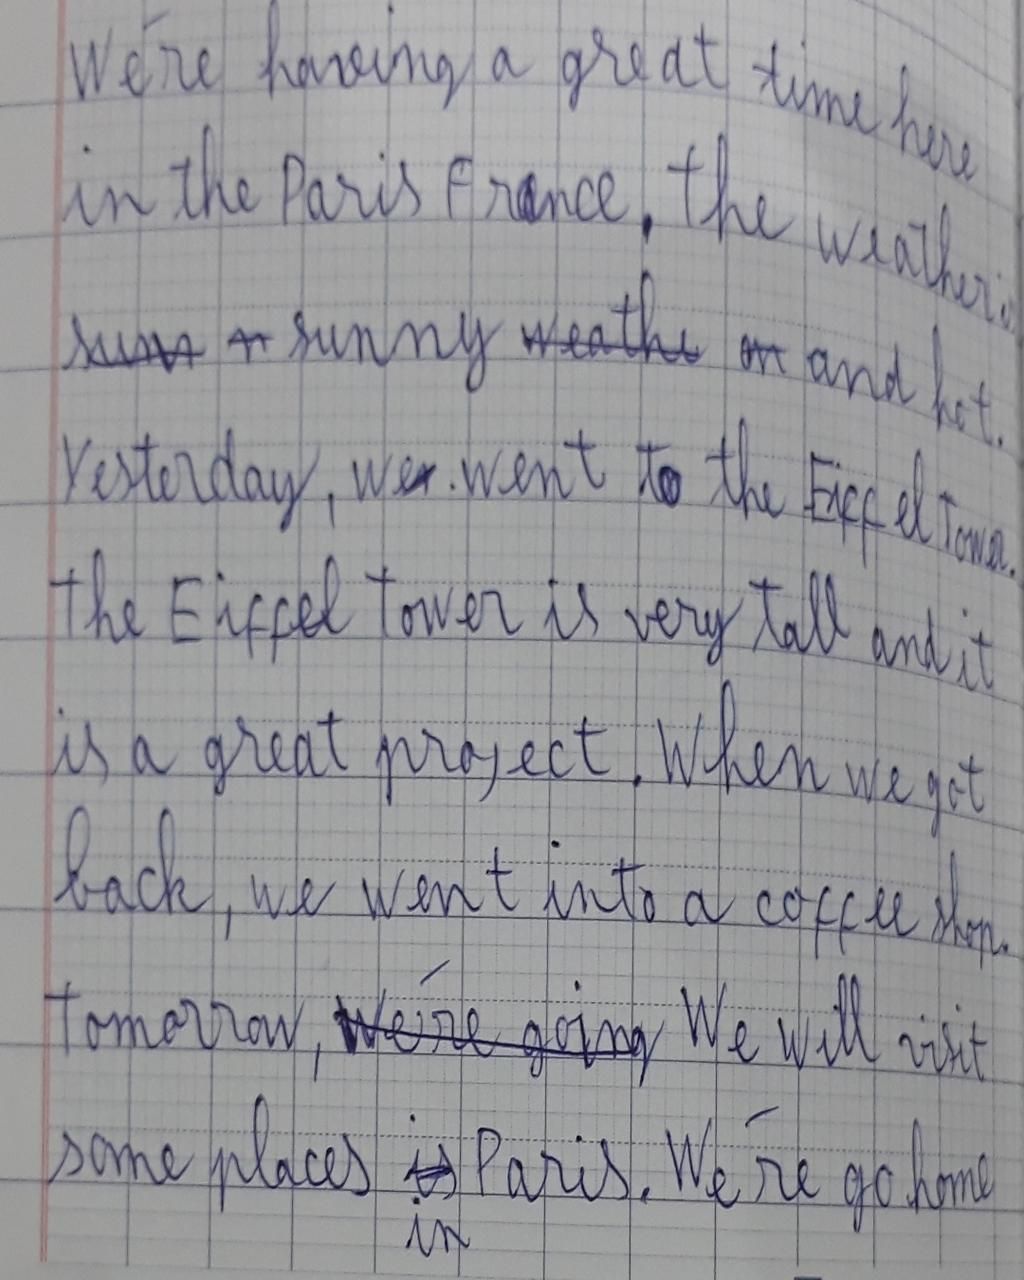 We're having a great time here
in the Paris France. the weather is
sunny and hot.
Yesterday, we went to the Eiffel Tower.
the Eiffel Tower is very tall and it
is a great project. When we got
back, we went into a coffee shop.
tomorrow, We're going We will visit
some places is Paris. We're go home
in